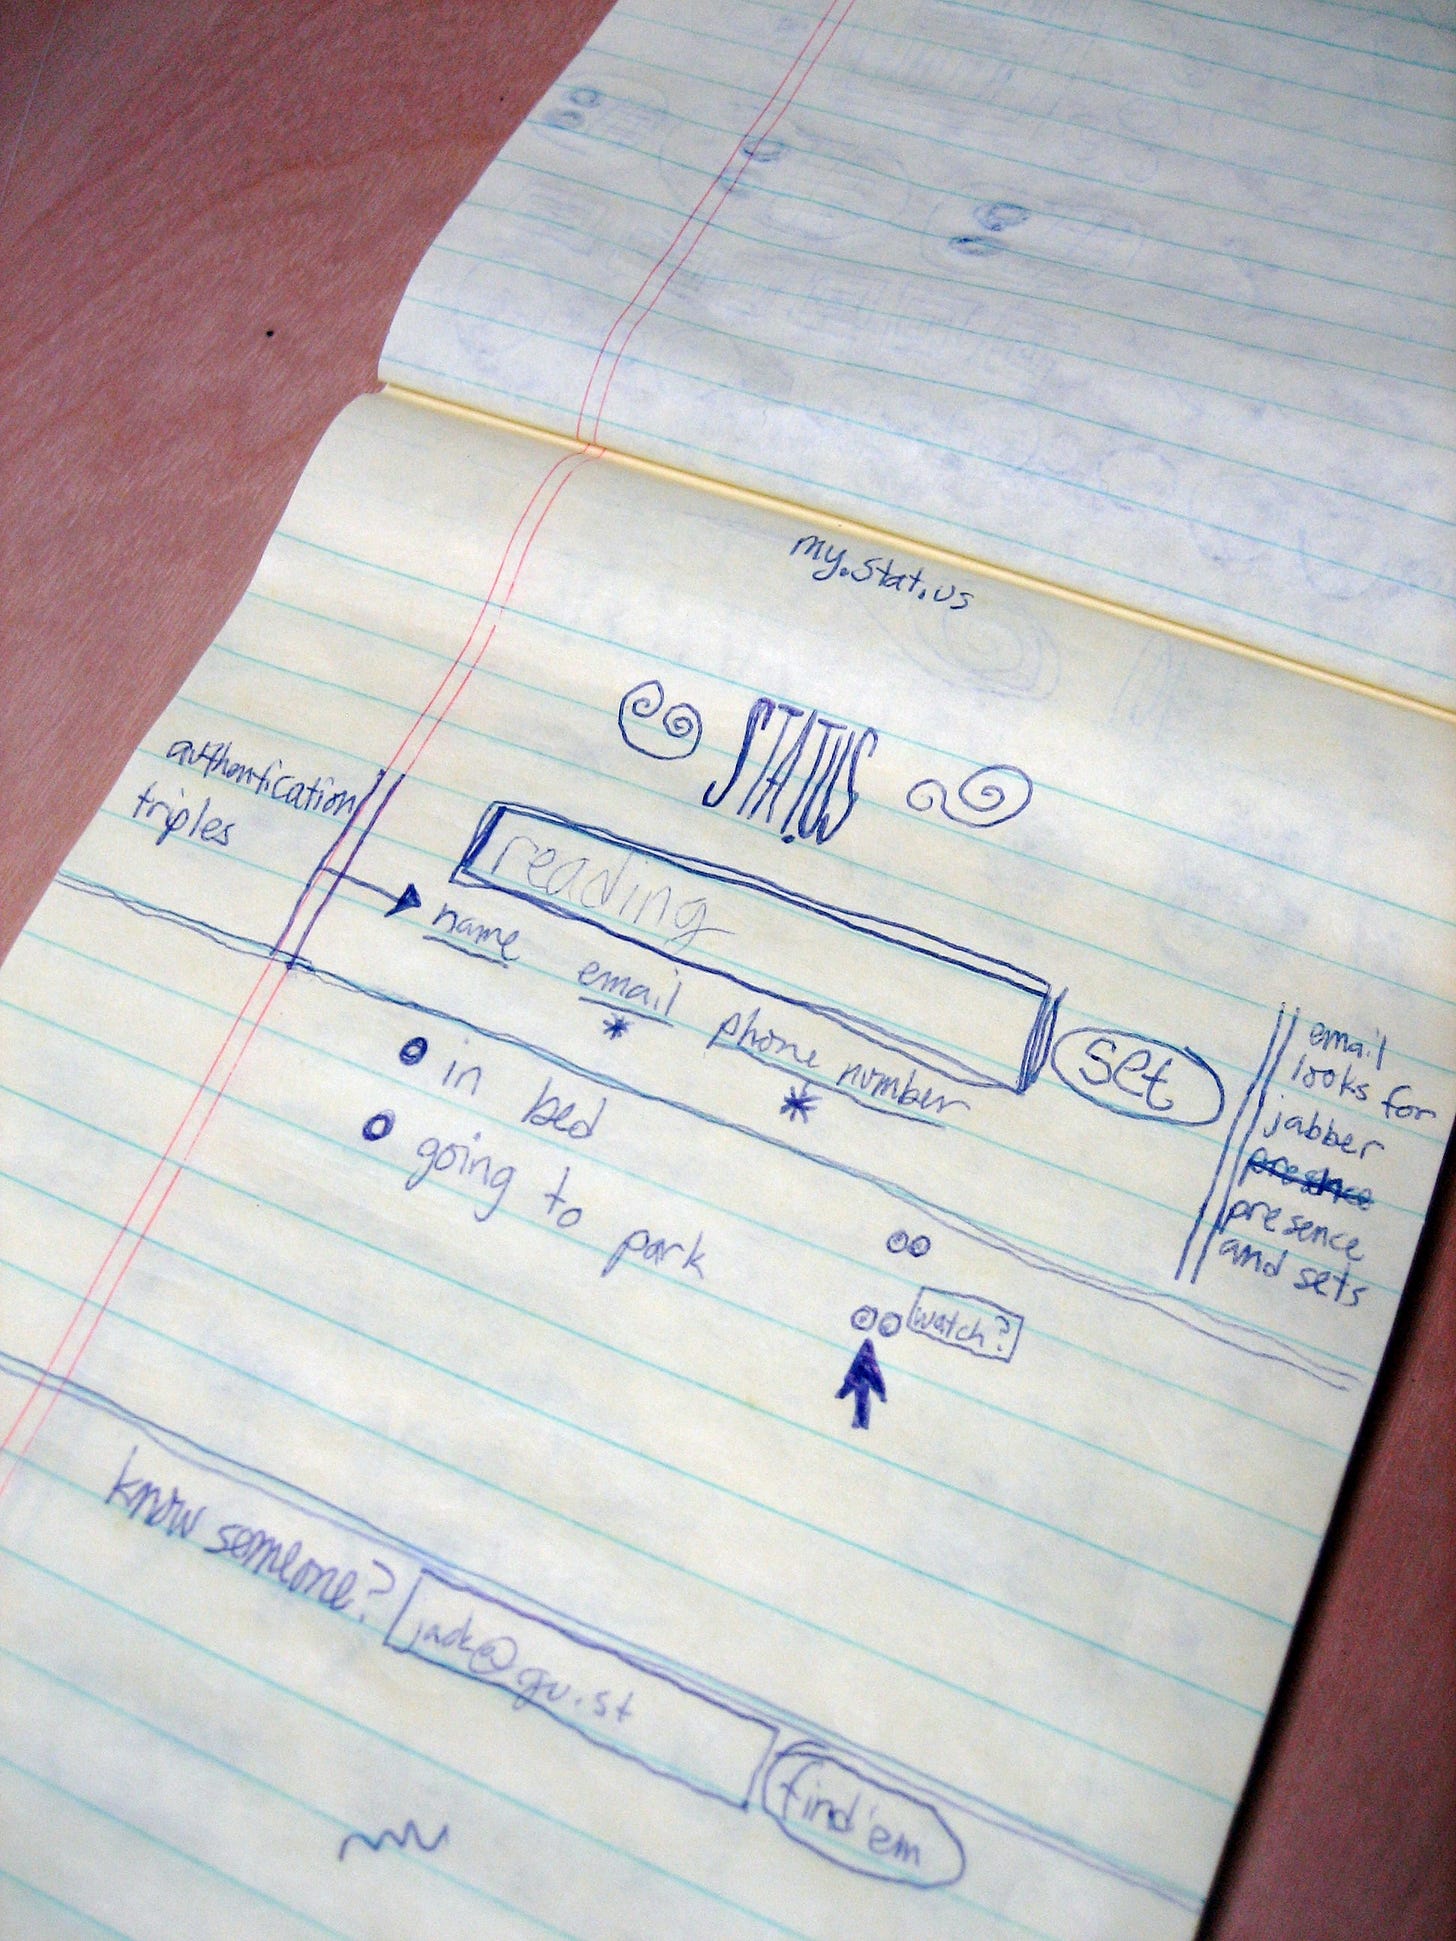 my.stat.us
STAT.US
authentication
triples
reading
name
email
*
phone number
*
set
email
looks for
jabber
presence
presence
and sets
in bed
going to park
watch?
know someone?
jack@gu.st
find 'em